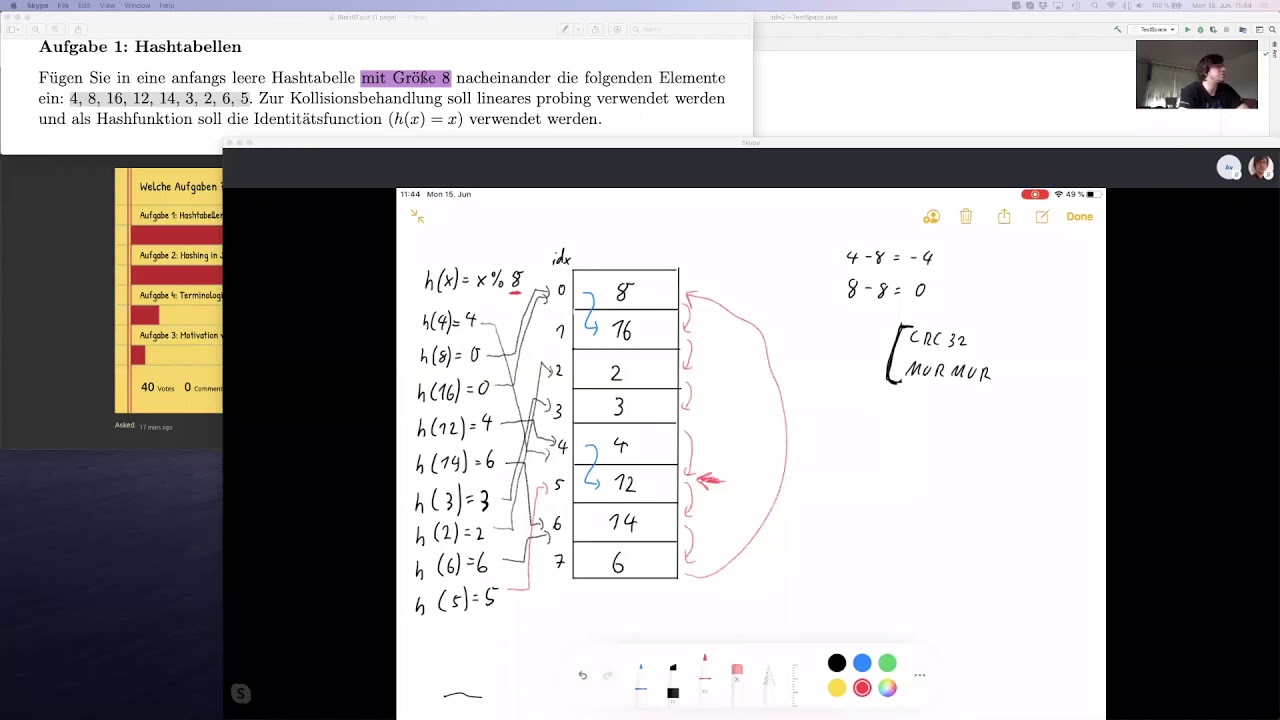 Skype File Edit View Window Help
100 % Mon 15. Jun 11:44
Blatt07.pdf (1 page)
Search
info2 – TestSpace.java
TestSpace
Aufgabe 1: Hashtabellen
Fügen Sie in eine anfangs leere Hashtabelle mit Größe 8 nacheinander die folgenden Elemente
ein: 4, 8, 16, 12, 14, 3, 2, 6, 5. Zur Kollisionsbehandlung soll lineares probing verwendet werden
und als Hashfunktion soll die Identitätsfunction (h(x) = x) verwendet werden.
Skype
Av
Welche Aufgaben ?
Aufgabe 1: Hashtabellen
Aufgabe 2: Hashing in J
Aufgabe 4: Terminologi
Aufgabe 3: Motivation v
40 Votes 0 Comment
Asked 17 mins ago
11:44 Mon 15. Jun
49 %
Done
idx
h(x) = x % 8
h(4) = 4
h(8) = 0
h(16) = 0
h(12) = 4
h(14) = 6
h(3) = 3
h(2) = 2
h(6) = 6
h(5) = 5
0 8
1 16
2 2
3 3
4 4
5 12
6 14
7 6
4 - 8 = -4
8 - 8 = 0
CRC 32
MURMUR